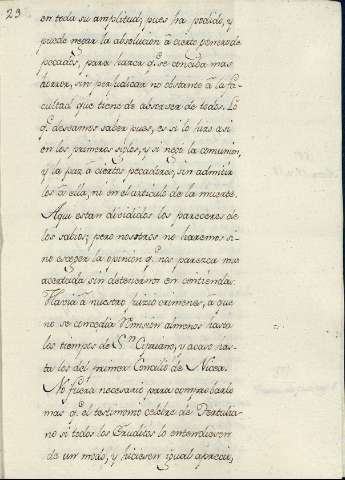 23
en toda su amplitud; pues ha podido, y
puede negar la absolucion â cierto genero de
pecados, para hacer q.e se conciba mas
horror, sin perjudicar no obstante â la fa-
cultad que tiene de absolver de todos. Lo
q.e deseamos saber pues, es si lo hizo asi
en los primeros siglos, y si nego la comunion,
y la paz â ciertos pecadores, sin admitir
los â ella, ni en el articulo de la muerte.
Aqui estan divididos los pareceres de
los sabios; pero nosotros no haremos si-
no escoger la opinion q.e nos parezca mas
acertada sin detenernos en contiendas.
Havia â nuestro juizio crimenes, â que
no se concedia remision almenos hasta
los tiempos de S.n Cipriano, y acaso has-
ta los del primer Concilio de Nicea.
No fuera necesario para comprobarlo
mas q.e el testimonio celebre de Tertulia-
no si todos los Eruditos lo entendiesen
de un modo, y hiciesen igual aprecio,